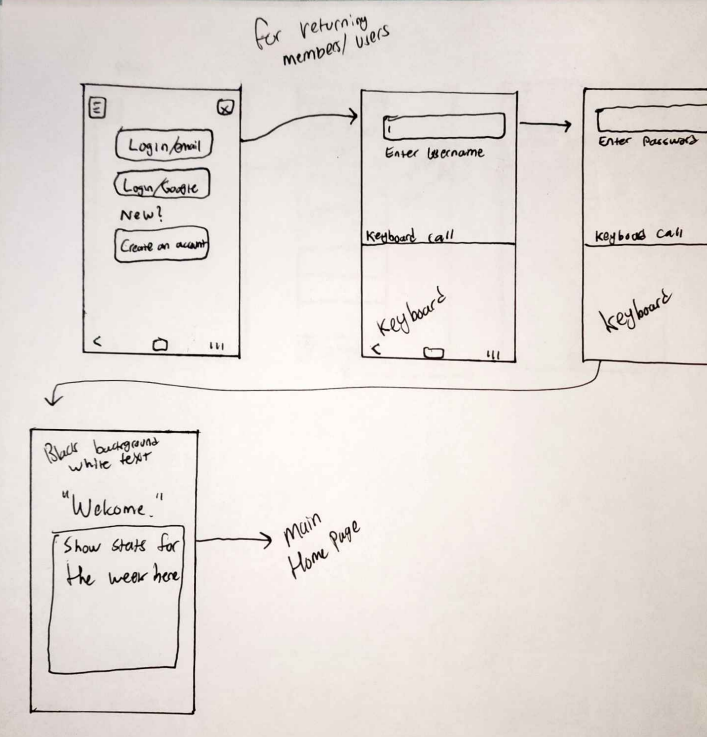 for returning
members/users
Login/Email
Login/Google
New?
Create an account
Enter Username
Keyboard call
Keyboard
Enter Password
Keyboard call
Keyboard
Black background
white text
"Welcome."
Show stats for
the week here
Main
Home Page